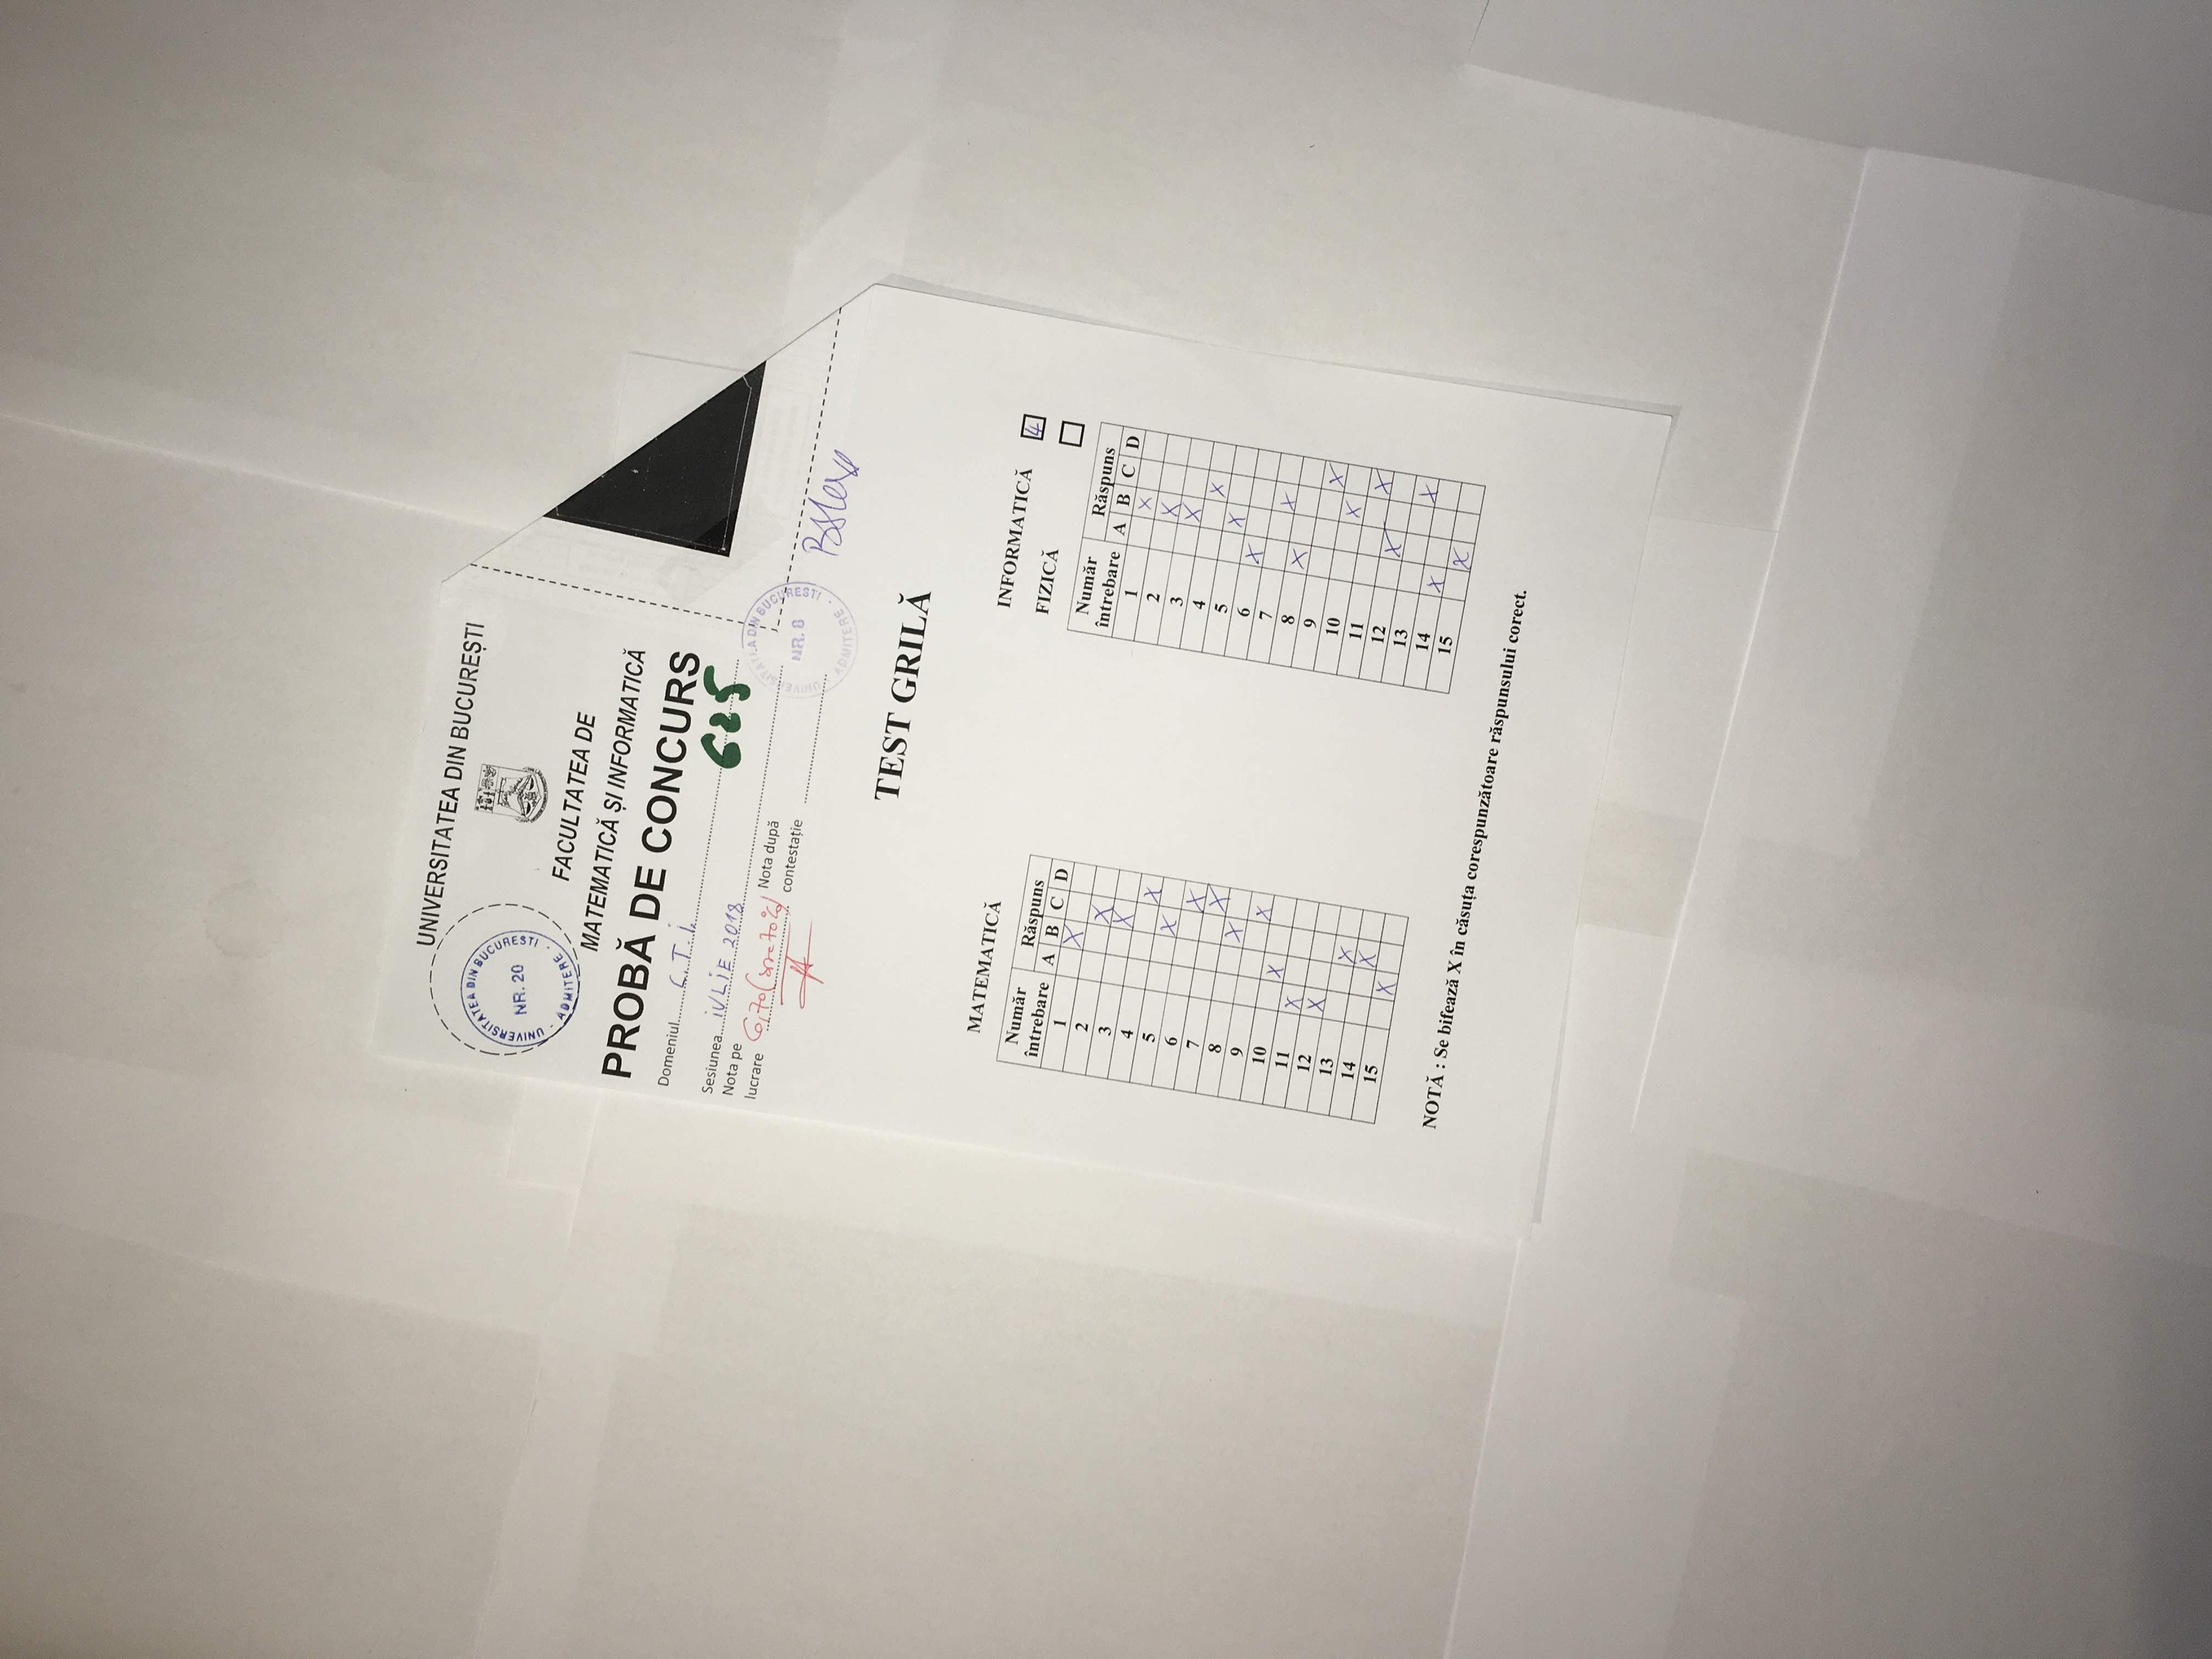 UNIVERSITATEA DIN BUCUREȘTI
UNIVERSITATEA DIN BUCURESTI
NR. 20
- ADMITERE -
FACULTATEA DE
MATEMATICĂ ȘI INFORMATICĂ
PROBĂ DE CONCURS
Domeniul C.T.i.
625
Sesiunea iULiE 2018
Nota pe lucrare 6,70
Nota după contestație
UNIVERSITATEA DIN BUCURESTI
NR. 8
- ADMITERE -
TEST GRILĂ
MATEMATICĂ
Număr întrebare Răspuns
A B C D
1 X
2 X
3 X
4 X
5 X
6 X
7 X
8 X
9 X
10 X
11 X
12 X
13 X
14 X
15 X
INFORMATICĂ 4
FIZICĂ
Număr întrebare Răspuns
A B C D
1 X
2 X
3 X
4 X
5 X
6 X
7 X
8 X
9 X
10 X
11 X
12 X
13 X
14 X
15 X
NOTĂ : Se bifează X în căsuța corespunzătoare răspunsului corect.